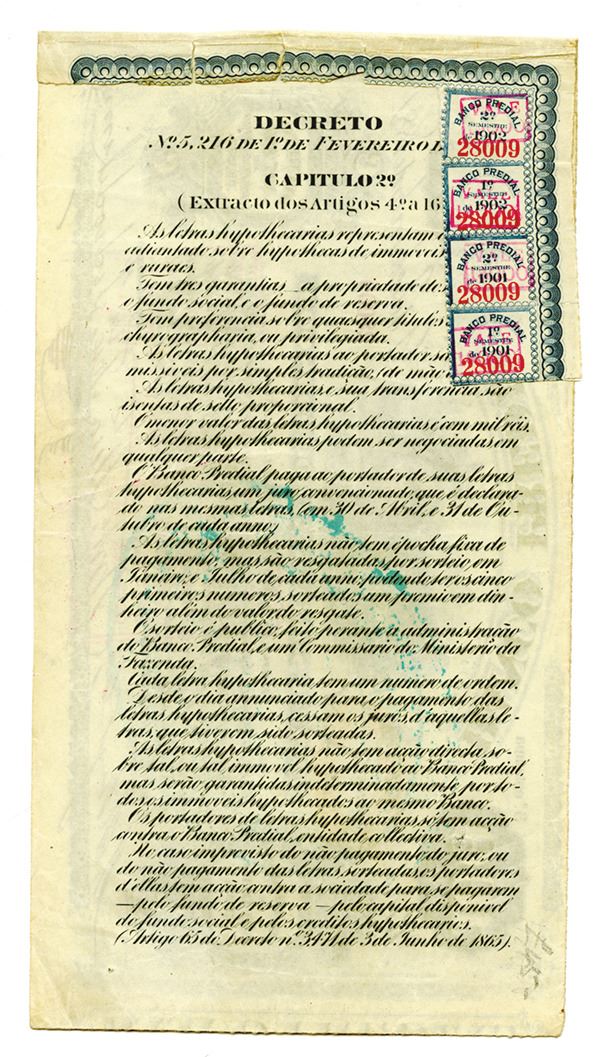 DECRETO
Nº 5,216 DE 1º DE FEVEREIRO D
CAPITULO 2º
(Extracto dos Artigos 4º a 16
As letras hypothecarias representam
adiantado sobre hypothecas de immoveis
e ruraes.
Tem tres garantias—a propriedade
o fundo social, e o fundo de reserva.
Tem preferencia sobre quaesquer titulos
chyrographaria, ou privilegiada.
As letras hypothecarias ao portador são
missiveis por simples tradição, (de mão
As letras hypothecarias, e sua transferencia, são
isentas de sello proporcional.
O menor valor das letras hypothecarias é cem mil réis.
As letras hypothecarias podem ser negociadas em
qualquer parte.
O Banco Predial paga ao portador de suas letras
hypothecarias, um juro, convencionado, que é declara-
do nas mesmas letras, (em 30 de Abril, e 31 de Ou-
tubro de cada anno.)
As letras hypothecarias não tem épocha fixa de
pagamento, mas são resgatadas por sorteio, em
Janeiro, e Julho de cada anno, podendo ter os cinco
primeiros numeros, sorteados, um premio em din-
heiro além do valor do resgate.
O sorteio é publico, feito perante a administração
do Banco Predial, e um Commissario do Ministerio da
Fazenda.
Cada letra hypothecaria tem um numero de ordem.
Desde o dia annunciado para o pagamento das
letras hypothecarias, cessam os juros, d'aquellas le-
tras, que tiverem sido sorteadas.
As letras hypothecarias não tem acção directa, so-
bre tal, ou tal immovel hypothecado ao Banco Predial,
mas serão, garantidas indeterminadamente, por to-
dos os immoveis hypothecados ao mesmo Banco.
Os portadores de letras hypothecarias, só tem acção
contra o Banco Predial, entidade collectiva.
No caso improvisto do não pagamento do juro, ou
do não pagamento das letras, sorteadas, os portadores
d'ellas tem acção contra a sociedade para se pagarem
—pelo fundo de reserva—pelo capital disponivel
do fundo social e pelos creditos hypothecarios.
(Artigo 65 do Decreto nº 3,471 de 3 de Junho de 1865).
BANCO PREDIAL
2º
SEMESTRE
de 1902
28009
BANCO PREDIAL
1º
SEMESTRE
de 1902
28009
BANCO PREDIAL
2º
SEMESTRE
de 1901
28009
BANCO PREDIAL
1º
SEMESTRE
de 1901
28009